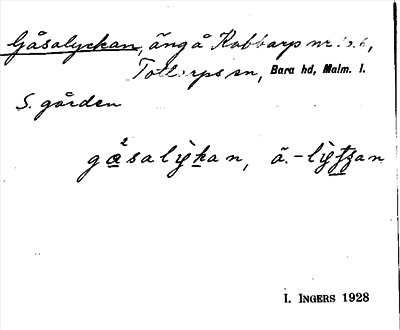 Gåsalyckan, äng å Kabbarp nr
Tottarps sn, Bara hd, Malm. l.
S. gården
gåsalykan, ä. -
I. INGERS 1928